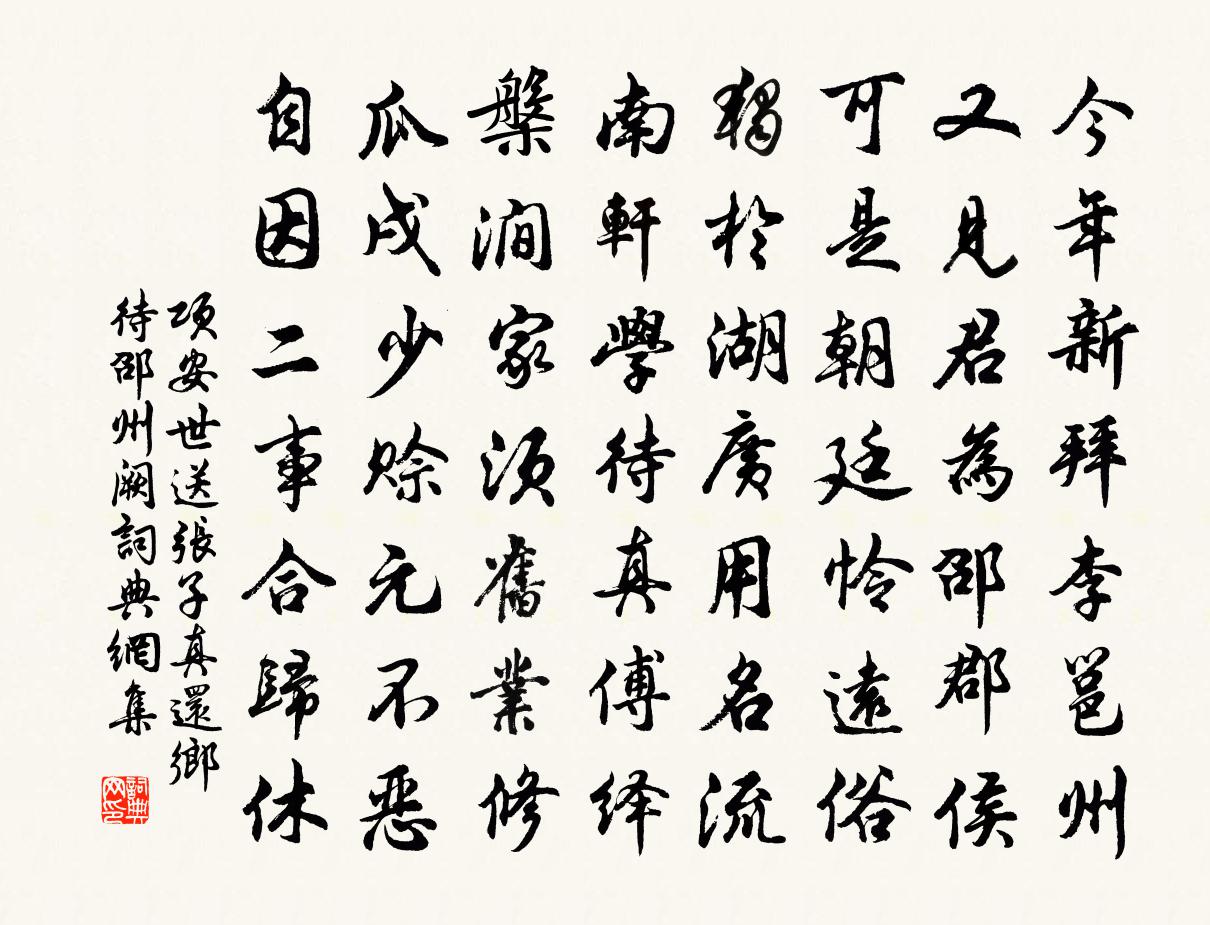 今年新拜李邕州
又見君為邵郡侯
可是朝廷怜遠俗
獨於湖廣用名流
南軒學待真傅绎
槃澗家須舊業修
瓜戍少赊元不惡
自因二事合歸休
項安世送張子真還鄉
待邵州阙詞典網集
詞典
网印